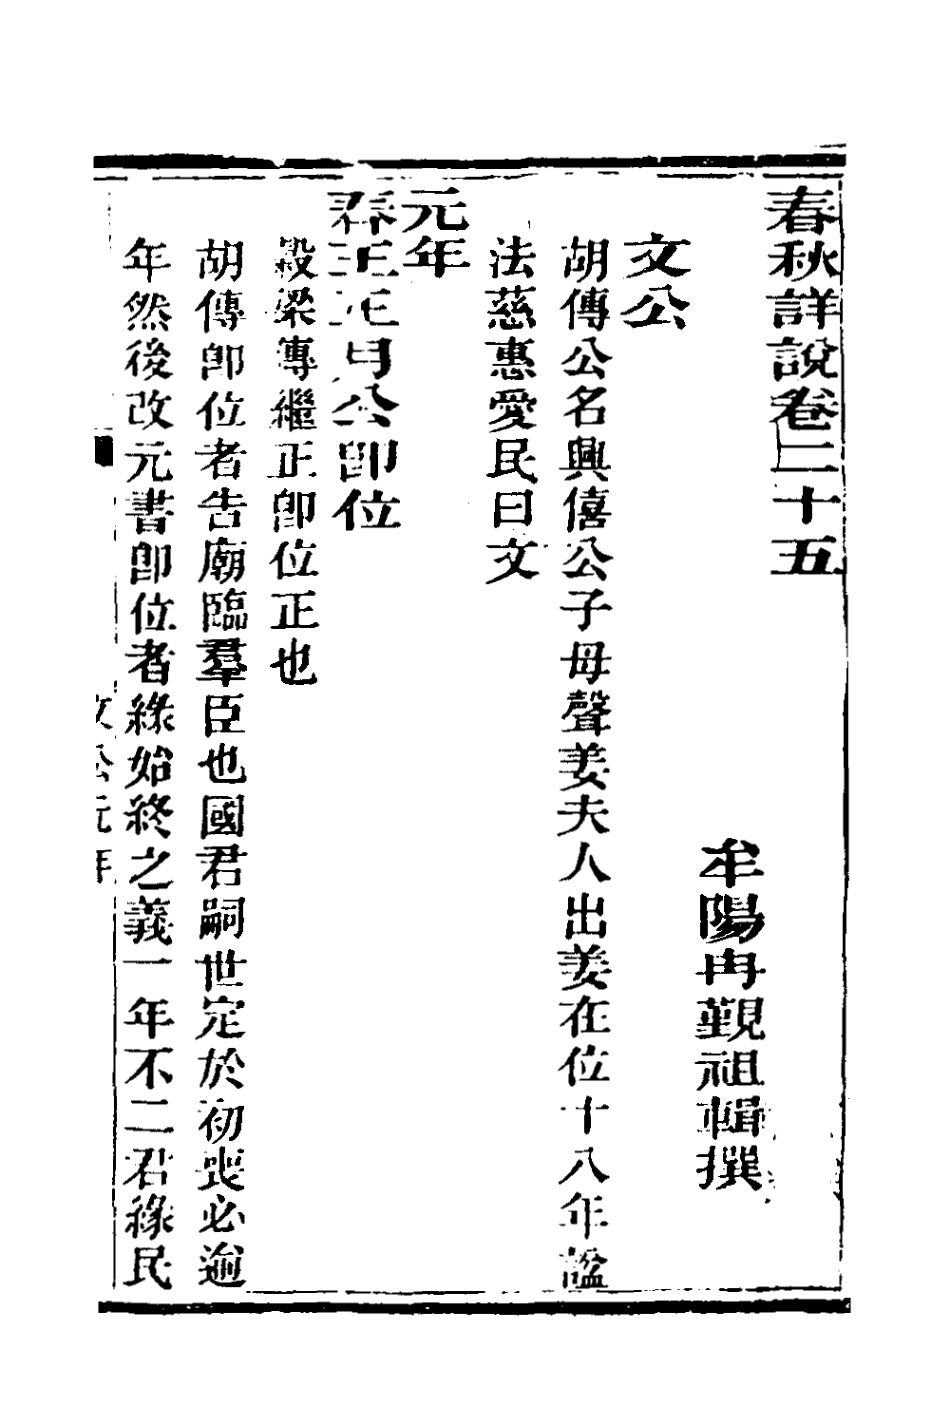 春秋詳說卷二十五
牟陽冉覲祖輯撰
文公
胡傳公名興僖公子母聲姜夫人出姜在位十八年諡
法慈惠愛民曰文
元年
春王正月公卽位
穀梁傳繼正卽位正也
胡傳卽位者告廟臨羣臣也國君嗣世定於初喪必逾
年然後改元書卽位者緣始終之義一年不二君緣民
文公元年